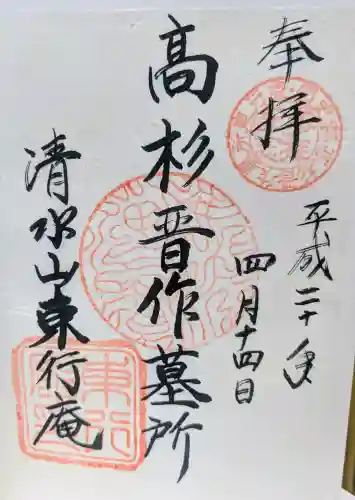 奉拝
平成二十年
四月十四日
高杉晋作墓所
清水山東行庵